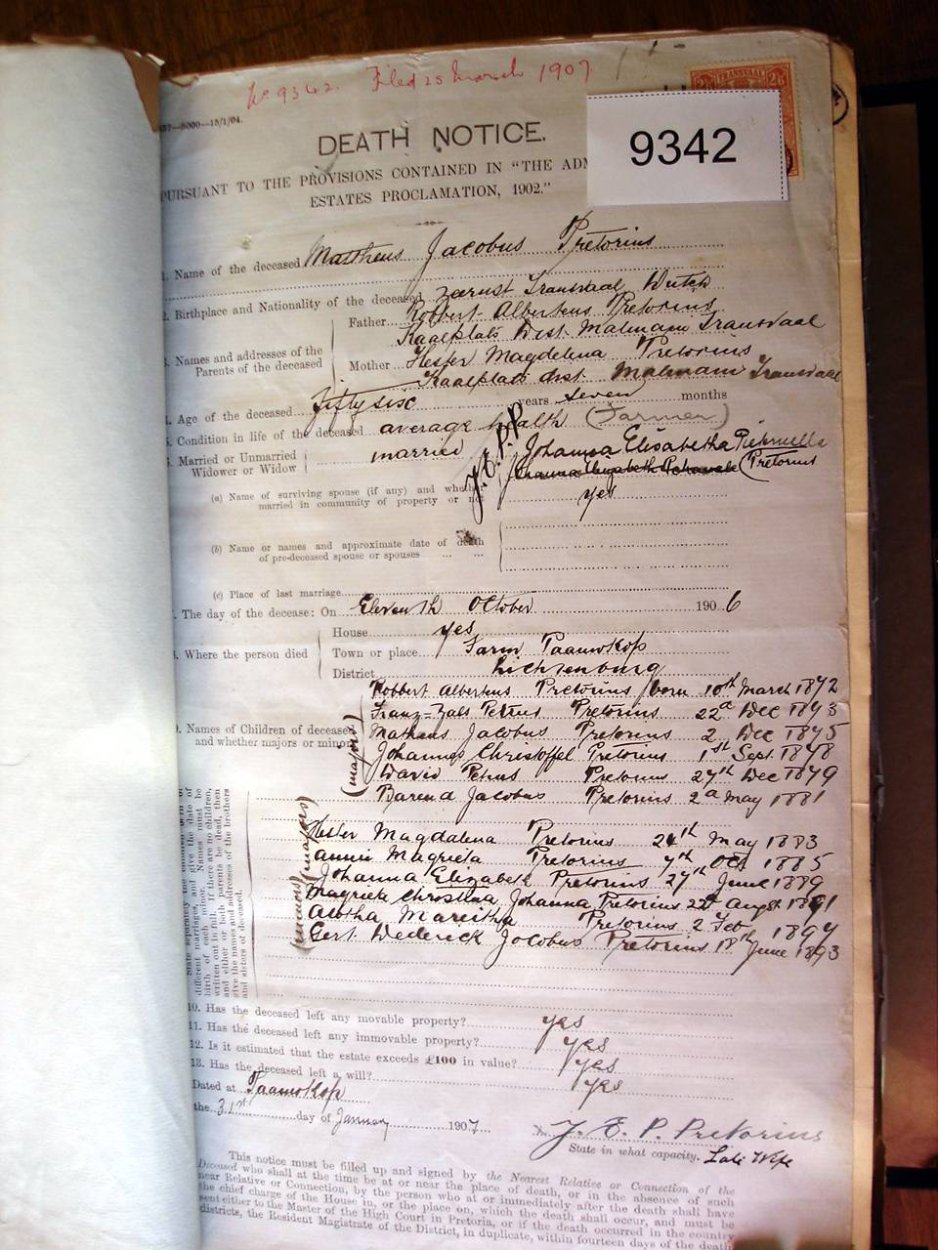 No 9342. Filed 25 March 1907
TRANSVAAL
2/6 2/6
9342
57—8000—15/1/04.
DEATH NOTICE.
PURSUANT TO THE PROVISIONS CONTAINED IN "THE ADM
ESTATES PROCLAMATION, 1902."
1. Name of the deceased Mattheus Jacobus Pretorius
2. Birthplace and Nationality of the deceased Zeerust Transvaal Dutch
3. Names and addresses of the Parents of the deceased
Father Robbert Albertens Pretorius
Kaalplats Dist. Malmani Transvaal
Mother Hester Magdelena Pretorius
Kaalplats dist Malmani Transvaal
4. Age of the deceased fifty six years seven months
5. Condition in life of the deceased average health (Farmer)
6. Married or Unmarried
Widower or Widow
married
J.E.P.P
Johanna Elisabetha Pieternella
(Pretorius
(a) Name of surviving spouse (if any) and whether
married in community of property or not
yes
(b) Name or names and approximate date of death
of pre-deceased spouse or spouses
(c) Place of last marriage
7. The day of the decease: On Eleventh October 1906
8. Where the person died
House yes
Town or place Farm Paauwkop
District Lichtenburg
9. Names of Children of deceased
and whether majors or minors
(majors)
Robbert Albertens Pretorius born 10th March 1872
Pretorius 22d Dec 1873
Mathens Jacobus Pretorius 2 Dec 1875
Johannes Christoffel Pretorius 1st Sept. 1878
David Petrus Pretorius 27th Dec 1879
Barend Jacobus Pretorius 2d May 1881
(majors)
Hester Magdalena Pretorius 24th May 1883
Annie Magrieta Pretorius 7th Oct 1885
(minors)
Johanna Elizabeth Pretorius 27th June 1889
Magrieta Christina Johanna Pretorius 22d Augst 1891
Pretorius 2 Feb 1894
Gert Diederick Jacobus Pretorius 18th June 1893
State separately the children born of
different marriages, and give the date of
birth of each minor. Names must be
written out in full. If there are no children,
and either or both parents be dead, then
give the names and addresses of the brothers
and sisters of deceased.
10. Has the deceased left any movable property? yes
11. Has the deceased left any immovable property? yes
12. Is it estimated that the estate exceeds £100 in value? yes
13. Has the deceased left a will? yes
Dated at Paauwkop
the 31st day of January 1907
J. E. P. Pretorius
State in what capacity. Late Wife
This notice must be filled up and signed by the Nearest Relative or Connection of the
Deceased who shall at the time be at or near the place of death, or in the absence of such
near Relative or Connection, by the person who at or immediately after the death shall have
the chief charge of the House in, or the place on, which the death shall occur, and must be
sent either to the Master of the High Court in Pretoria, or if the death occurred in the country
districts, the Resident Magistrate of the District, in duplicate, within fourteen days of the death